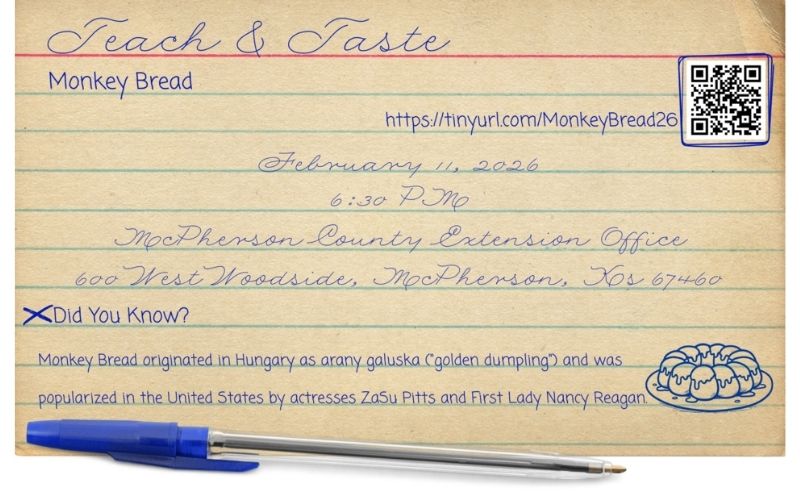 Teach & Taste
Monkey Bread
https://tinyurl.com/MonkeyBread26
February 11, 2026
6:30 PM
McPherson County Extension Office
600 West Woodside, McPherson, Ks 67460
Did You Know?
Monkey Bread originated in Hungary as arany galuska ("golden dumpling") and was
popularized in the United States by actresses ZaSu Pitts and First Lady Nancy Reagan.